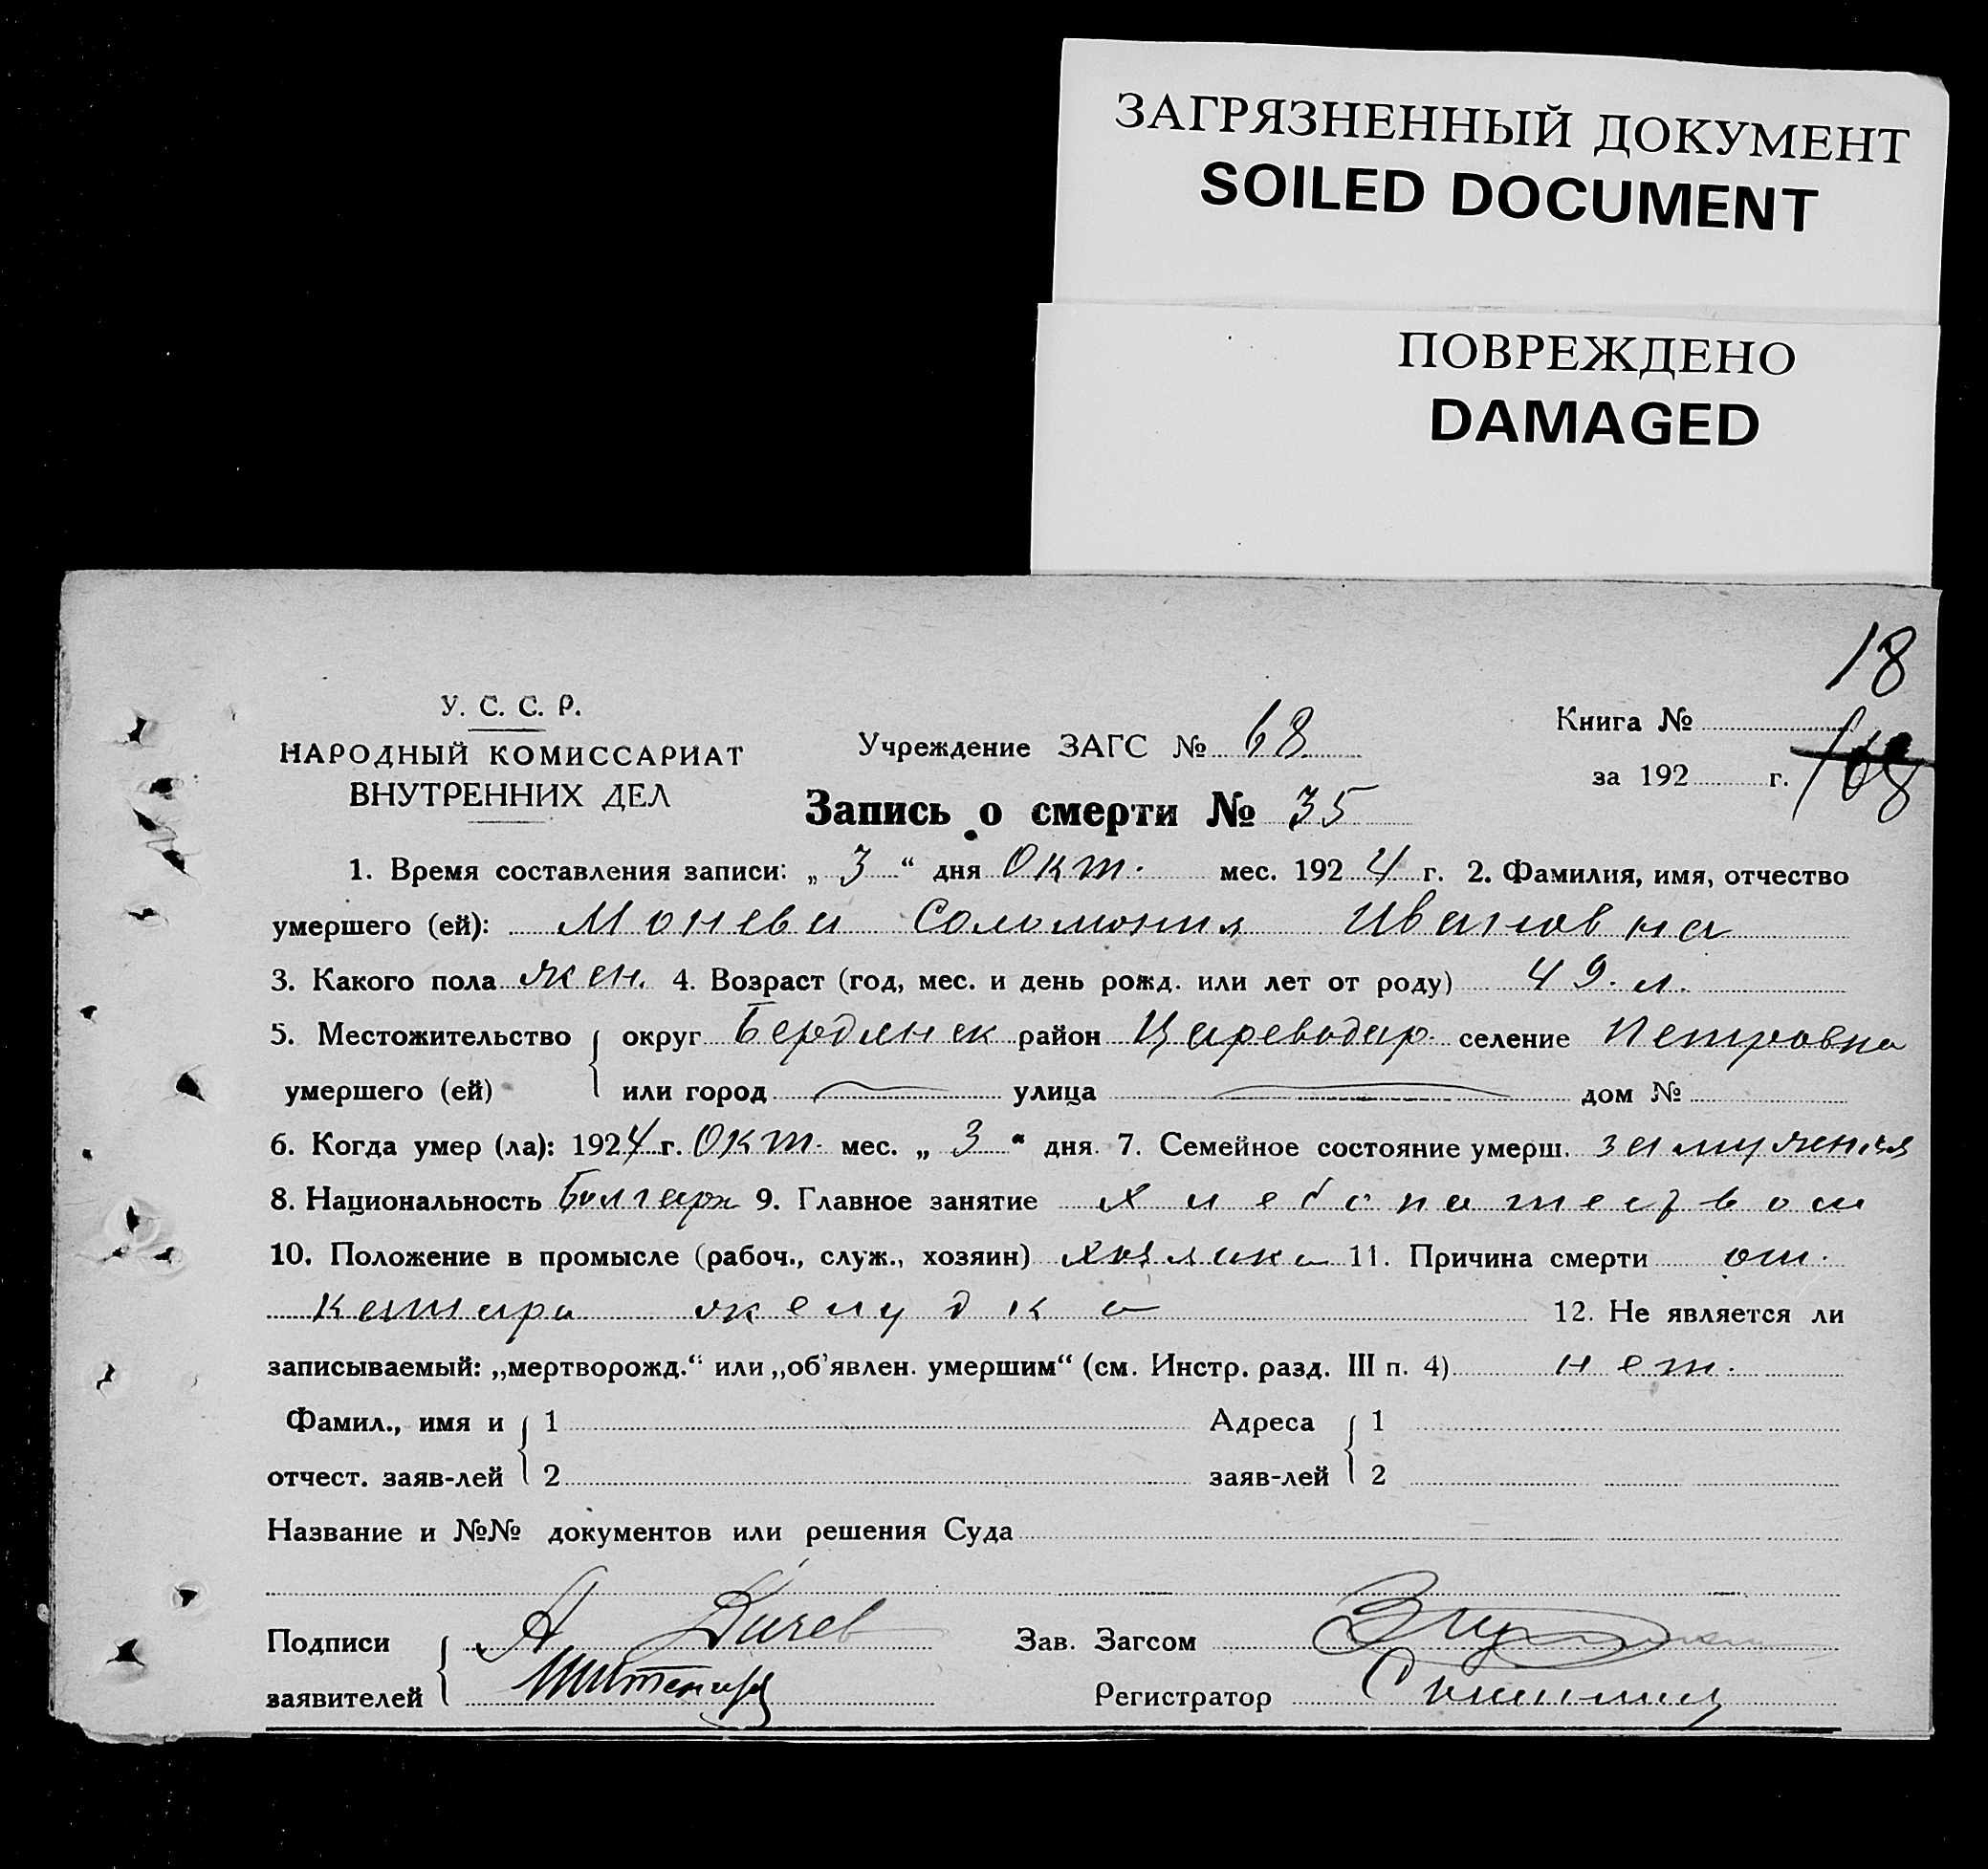 ЗАГРЯЗНЕННЫЙ ДОКУМЕНТ
SOILED DOCUMENT
ПОВРЕЖДЕНО
DAMAGED
18
У. С. С. Р.
НАРОДНЫЙ КОМИССАРИАТ
ВНУТРЕННИХ ДЕЛ
Учреждение ЗАГС № 68
Книга №
за 192 г. 168
Запись о смерти № 35
1. Время составления записи: „ 3 “ дня Окт. мес. 1924 г. 2. Фамилия, имя, отчество
умершего (ей): Монева Соломония Ивановна
3. Какого пола жен. 4. Возраст (год, мес. и день рожд. или лет от роду) 49. л.
5. Местожительство округ Бердянск район Цареводар. селение Петровка
умершего (ей) или город улица дом №
6. Когда умер (ла): 1924 г. Окт. мес. „ 3 “ дня. 7. Семейное состояние умерш. замужняя
8. Национальность Болгарк 9. Главное занятие хлебопашеством
10. Положение в промысле (рабоч., служ., хозяин) хозяика 11. Причина смерти от.
Катара желудка 12. Не является ли
записываемый: „мертворожд.“ или „об’явлен. умершим“ (см. Инстр. разд. III п. 4) нет.
Фамил., имя и 1 Адреса 1
отчест. заяв-лей 2 заяв-лей 2
Название и №№ документов или решения Суда
Подписи А Дичев Зав. Загсом
заявителей Регистратор